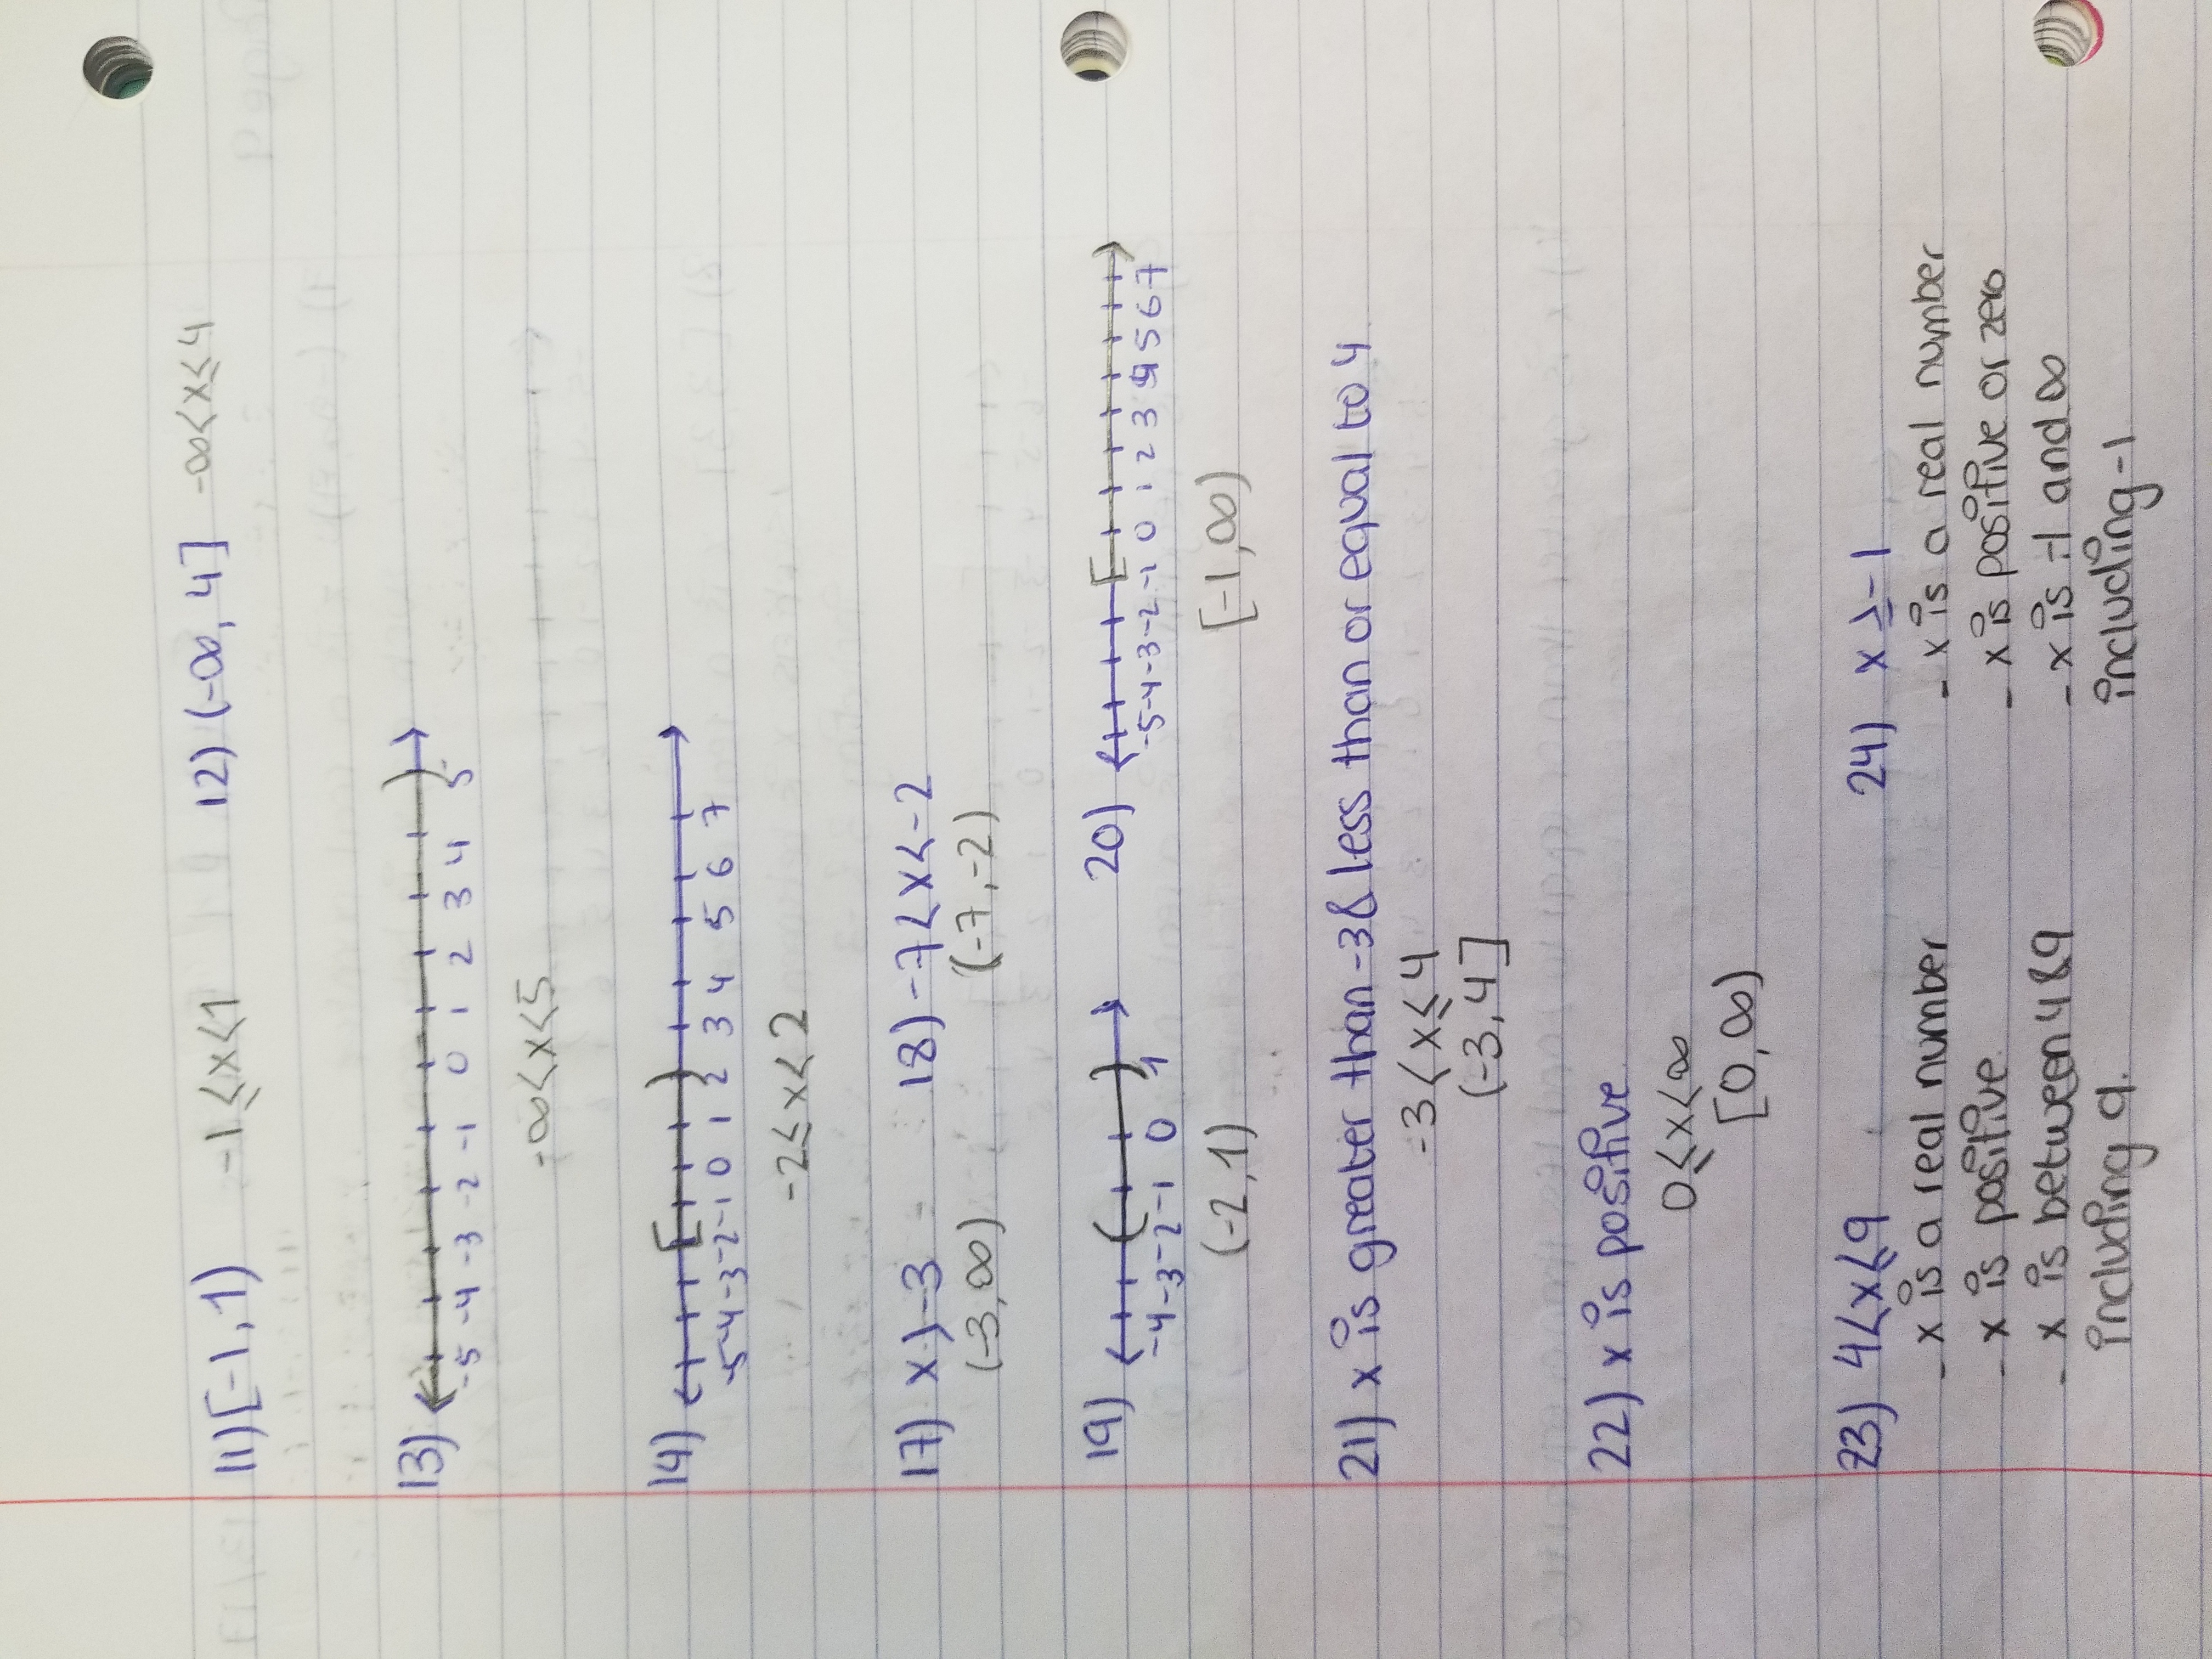 11) [-1, 1) -1 ≤ x < 1 12) (-∞, 4] -∞ < x ≤ 4
13) -5 -4 -3 -2 -1 0 1 2 3 4 5
-∞ < x < 5
14) -5 -4 -3 -2 -1 0 1 2 3 4 5 6 7
-2 ≤ x < 2
17) x > -3 18) -7 < x < -2
(-3, ∞) (-7, -2)
19) -4 -3 -2 -1 0 1 20) -5 -4 -3 -2 -1 0 1 2 3 4 5 6 7
(-2, 1) [-1, ∞)
21) x is greater than -3 & less than or equal to 4
-3 < x ≤ 4
(-3, 4]
22) x is positive
0 ≤ x < ∞
[0, ∞)
23) 4 < x ≤ 9 24) x ≥ -1
- x is a real number - x is a real number
- x is positive - x is positive or zero
- x is between 4 & 9 - x is -1 and ∞
including 9. including -1